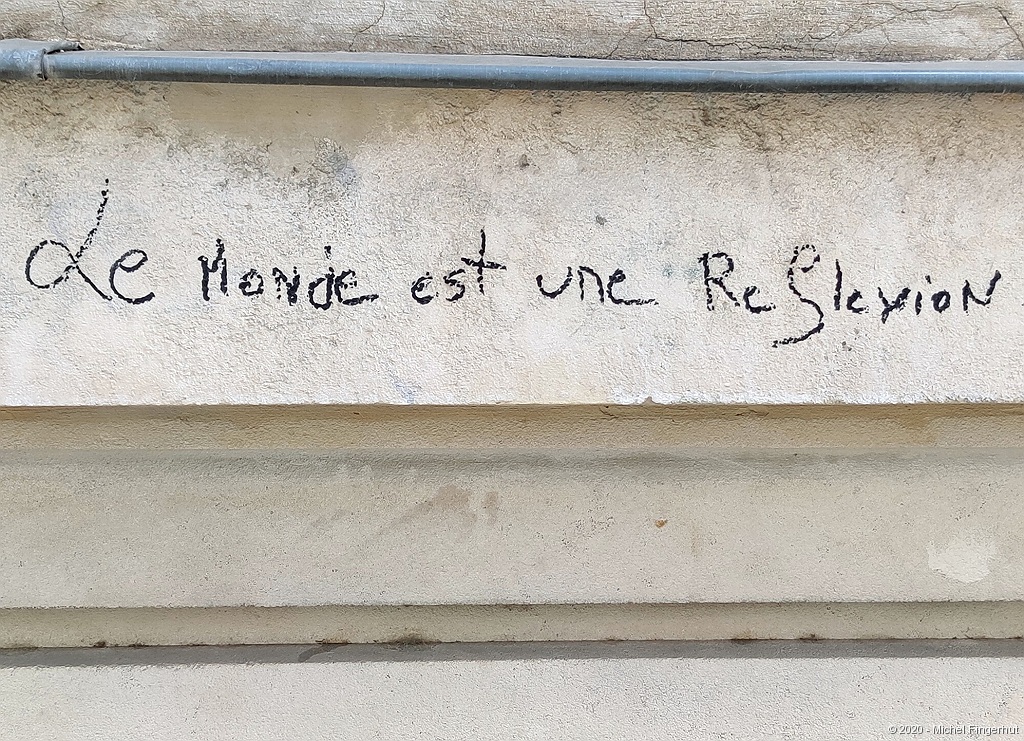 Le Monde est une Reflexion.
© 2020 - Michel Fingerhut